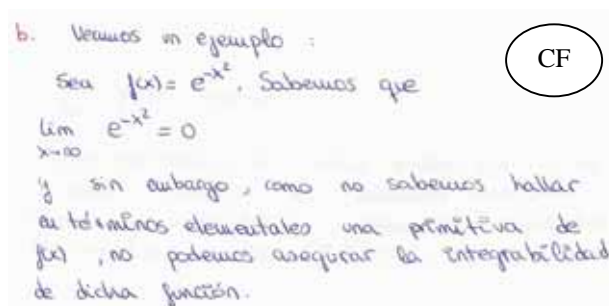 b. Veamos un ejemplo :
CF
Sea f(x) = e^{-x^2}. Sabemos que
lim e^{-x^2} = 0
x→∞
y sin embargo, como no sabemos hallar
en términos elementales una primitiva de
f(x), no podemos asegurar la integrabilidad
de dicha función.